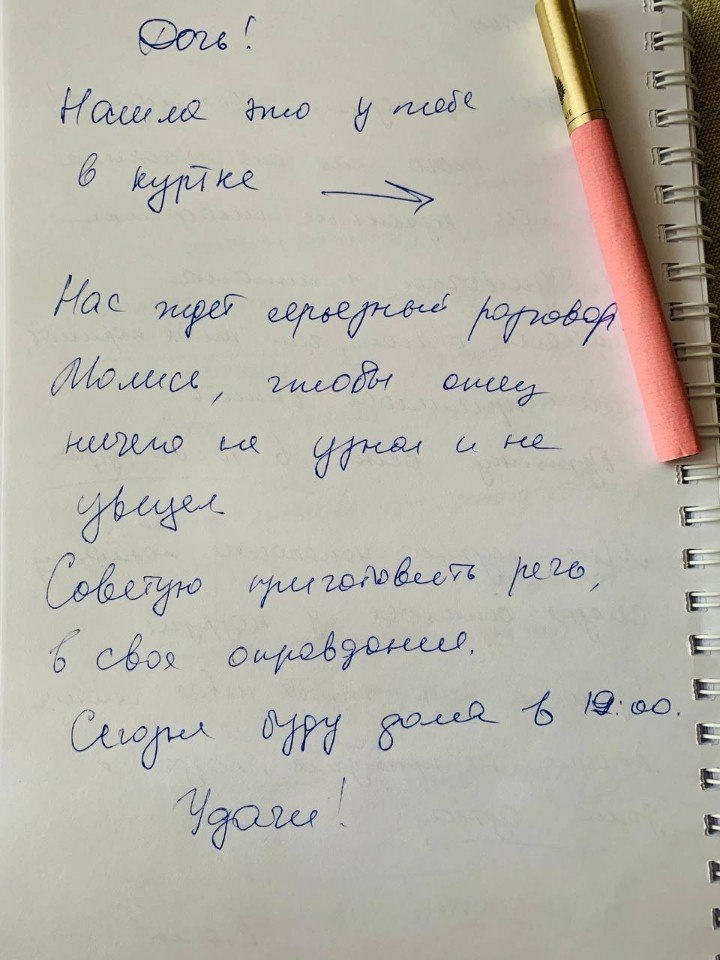 Дочь!
Нашла это у тебя
в куртке →
Нас ждет серьезный разговор.
Молись, чтобы отец
ничего не узнал и не
увидел
Советую приготовить речь,
в свое оправдание.
Сегодня буду дома в 19:00.
Удачи!